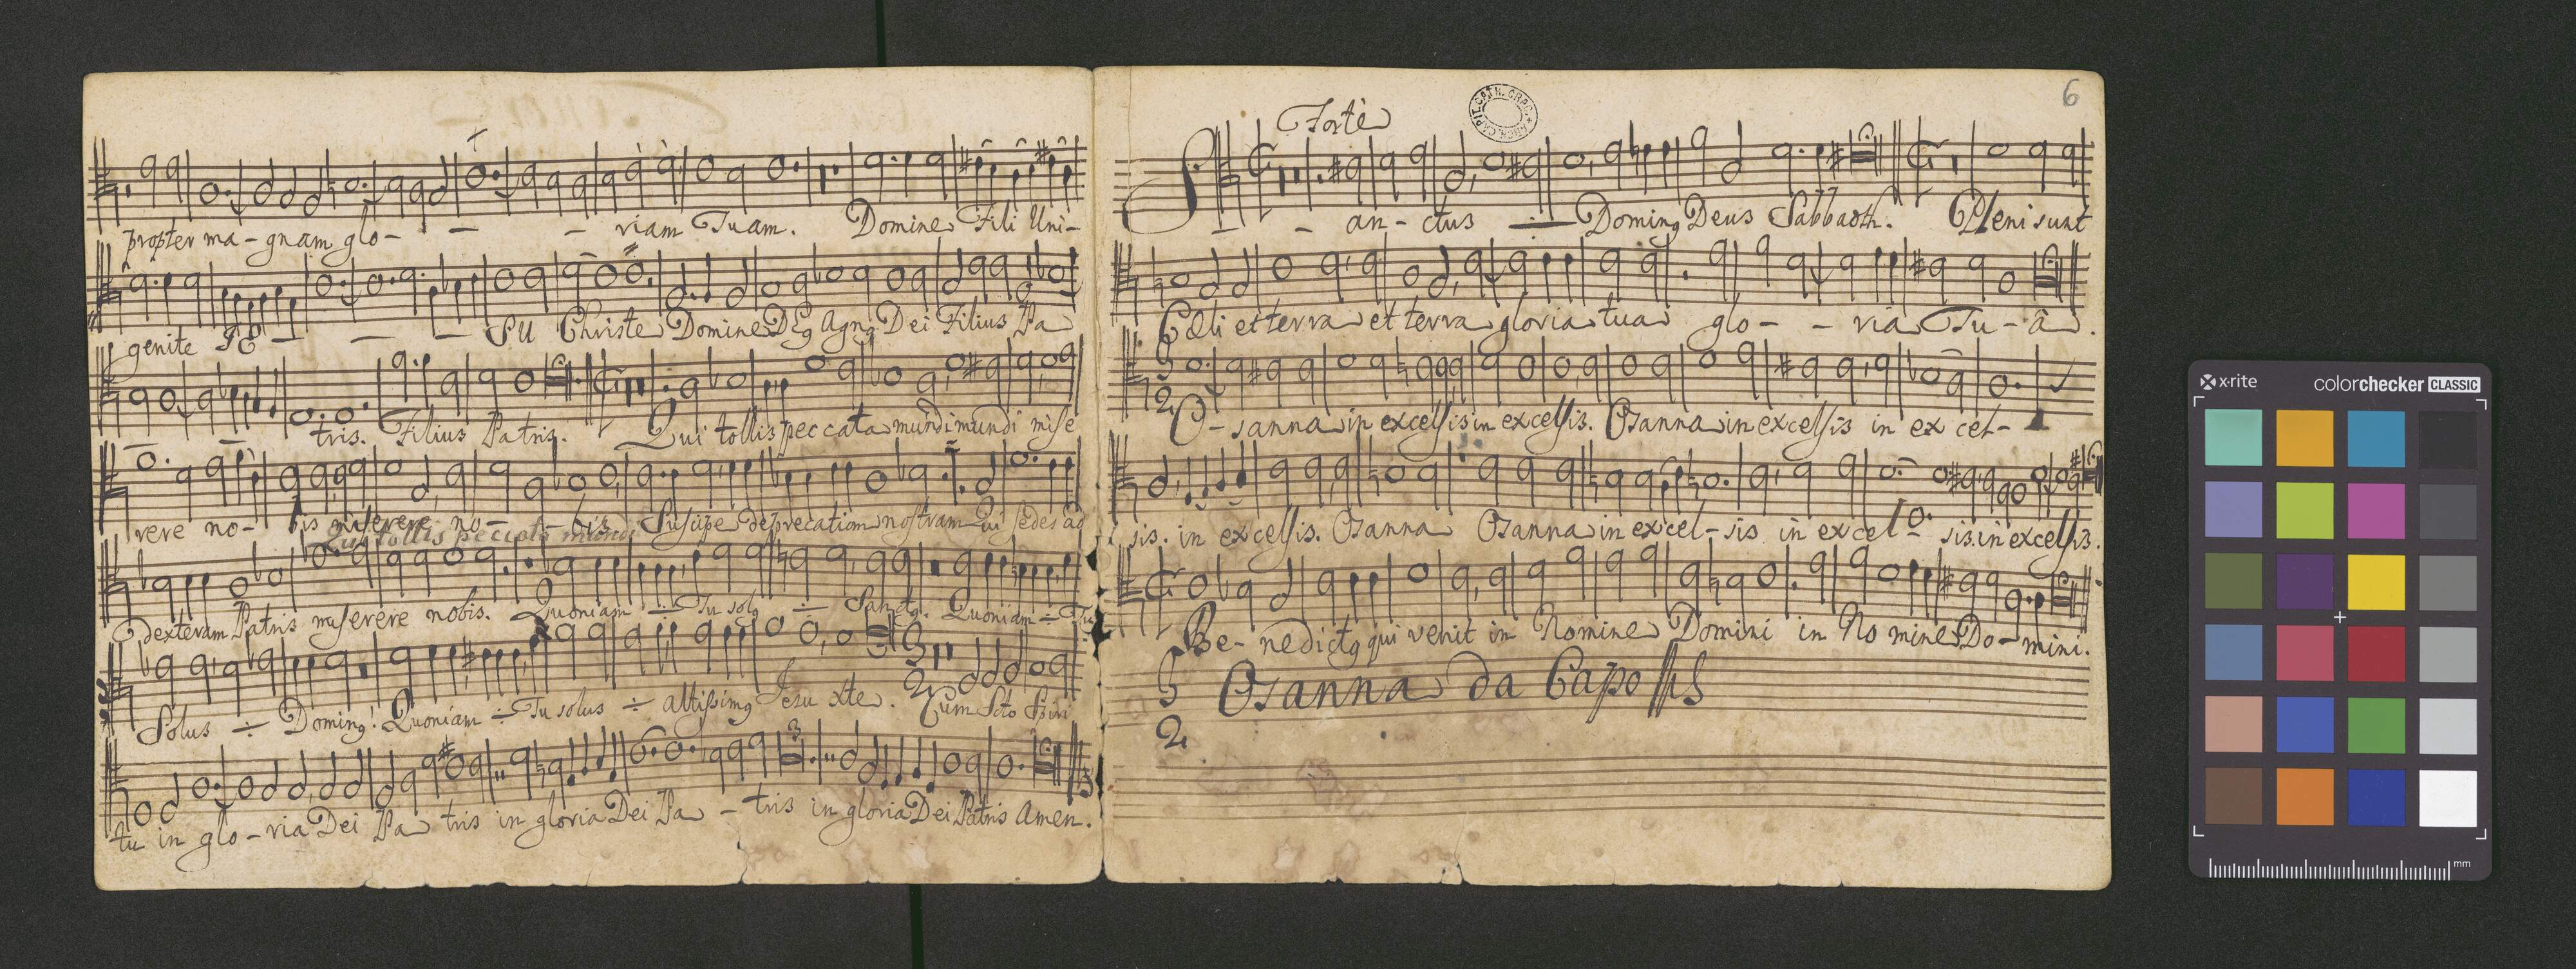 propter ma- gnam glo- - - riam Tuam. Domine Fili Uni-
genite JE - - - SU Christe Domine Dēg Agng Dei Filius Pa
tris. Filius Patris. Qui tollis peccata mundi mundi mise
rere no- bis miserere no- bis. Suscipe deprecationem nostram Qui sedes ad
Qui tollis peccata mundi
dexteram Patris miserere nobis. Quoniam ÷ Tu solg ÷ Sanctg. Quoniam ÷ Tu
Solus ÷ Doming! Quoniam ÷ Tu solus ÷ altissimg Jesu xte. Cum Scto Spiri
3
2
tu in glo-ria Dei Pa tris in gloria Dei Pa - tris in gloria Dei Patris Amen.
6
Forte
ARCH. CAPIT. CATH. CRAC.
S - - an - ctus ÷ Doming Deus Sabbaoth. Pleni sunt
Cæli et terra et terra gloria tua glo- - ria Tu - â.
3
2
O - sanna in excelsis in excelsis. Osanna in excelsis in ex cel-
sis. in excelsis. Osanna Osanna in excel-sis in excel- sis. in excelsis.
Be- nedictg qui venit in Nomine Domini in No mine Do-mini.
3
2
Osanna da Capo
x-rite
colorchecker CLASSIC
mm